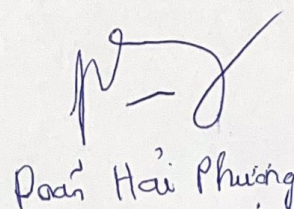 Doãn Hải Phương